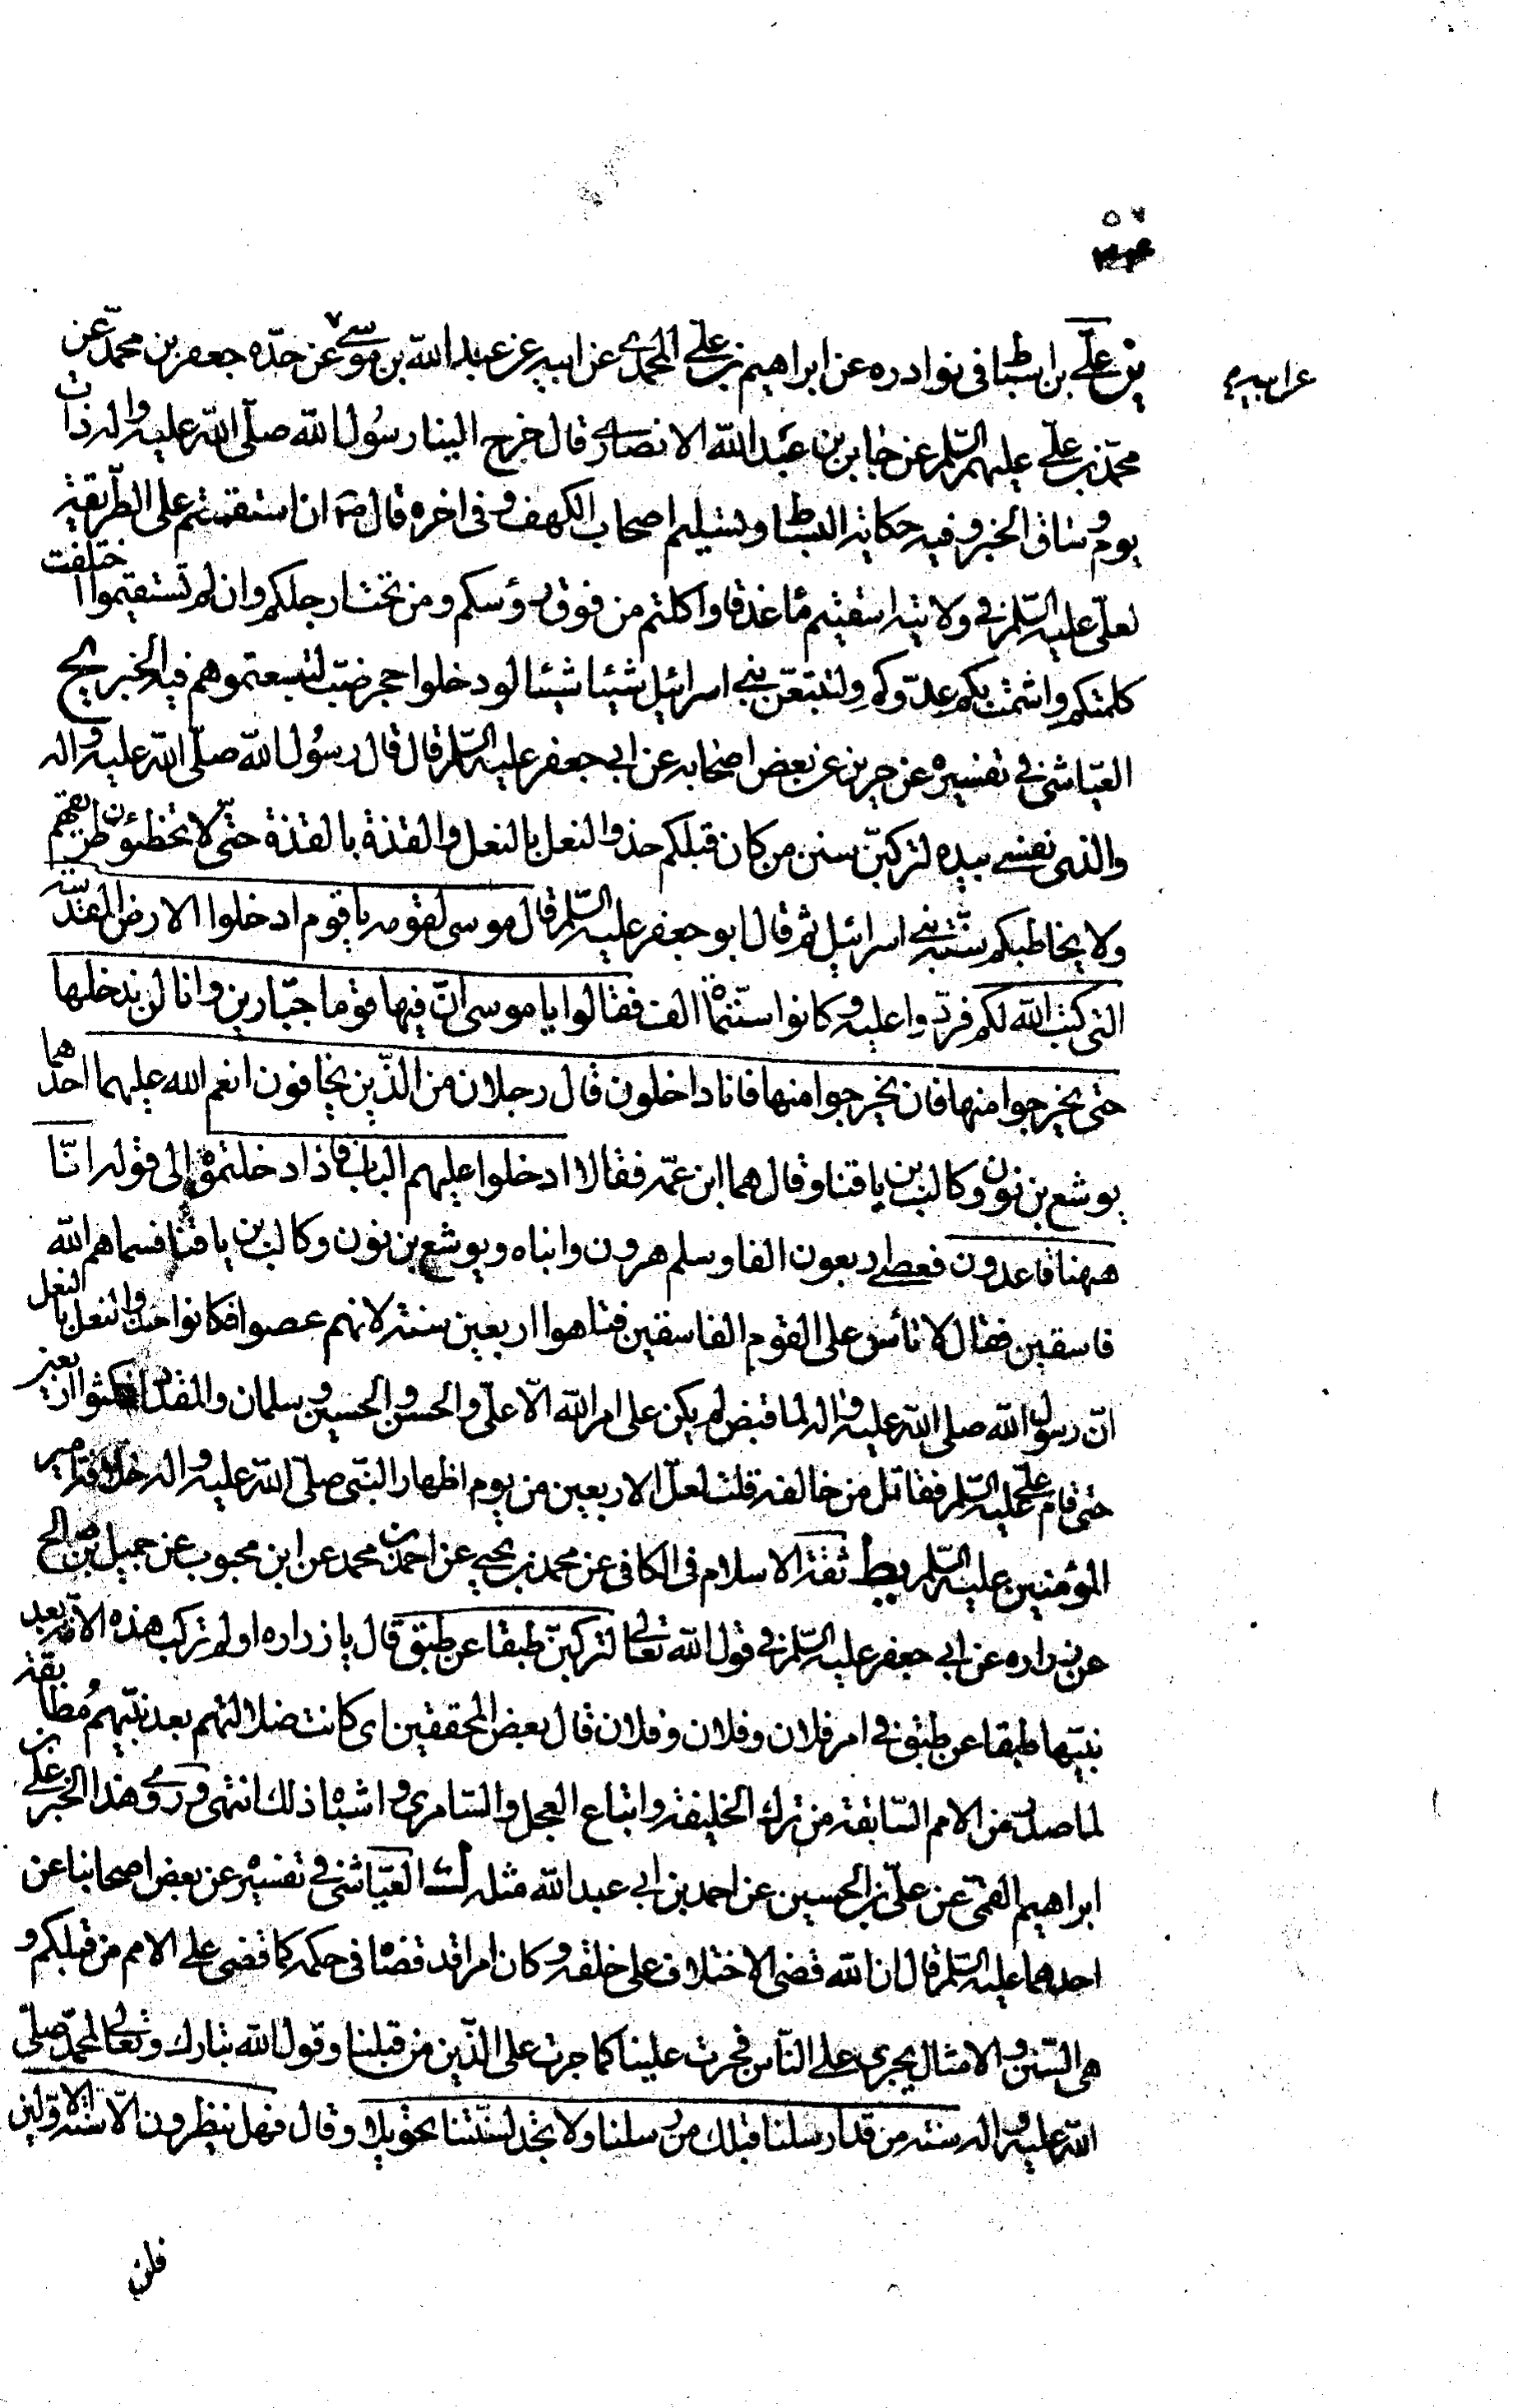 ٥٧
يز علي بن اسبا في نوادره عن ابراهيم بن علي المحمدي عن ابيه عن عبد الله بن موسى عن جده جعفر بن محمد عن
عن ابيه م
محمد بن علي عليهم السلم عن جابر بن عبد الله الانصاري قال خرج الينا رسول الله صلى الله عليه واله ذات
يوم وساق الخبر وفيه حكاية البساط وتسليم اصحاب الكهف وفى اخره قال ص ان استقمتم على الطريقة
لعلي عليه السلم في ولايته اسقيتم ماء غدقا واكلتم من فوق رؤسكم ومن تحت ارجلكم وان لم تستقيموا اختلفت
كلمتكم واشمت بكم عدوكم ولتتبعن بني اسرائيل شيئا شيئا لو دخلوا حجر ضب لتبعتموهم فيه الخبر يح
العياشي في تفسيره عن حريز عن بعض اصحابه عن ابي جعفر عليه السلم قال قال رسول الله صلى الله عليه واله
والذي نفسي بيده لتركبن سنن من كان قبلكم حذو النعل بالنعل والقذة بالقذة حتى لا تخطئون طريقهم
ولا يخاطبكم سنة بني اسرائيل ثم قال ابو جعفر عليه السلم قال موسى لقومه يا قوم ادخلوا الارض المقدسة
التي كتب الله لكم فردوا عليه وكانوا ستمائة الف فقالوا يا موسى ان فيها قوما جبارين وانا لن ندخلها
حتى يخرجوا منها فان يخرجوا منها فانا داخلون قال رجلان من الذين يخافون انعم الله عليهما احدهما
يوشع بن نون وكالب بن يافنا وقال هما ابن عمه فقالا ادخلوا عليهم الباب فاذا دخلتموه الى قوله انا
ههنا قاعدون فعصى اربعون الفا وسلم هرون وابناه ويوشع بن نون وكالب بن يافنا فسماهم الله
فاسقين فقال لا تأس على القوم الفاسقين فتاهوا اربعين سنة لانهم عصوا فكانوا حذو النعل بالنعل
ان رسول الله صلى الله عليه واله لما قبض لم يكن على امر الله الا علي والحسن والحسين وسلمان والمقداد فمكثوا اربعين
حتى قام علي عليه السلم فقاتل من خالفه قلت لعل الاربعين من يوم اظهار النبي صلى الله عليه واله خلافة امير
المؤمنين عليه السلم يط ثقة الاسلام في الكافي عن محمد بن يحيى عن احمد بن محمد عن ابن محبوب عن جميل بن صالح
عن زراره عن ابي جعفر عليه السلم في قول الله تعالى لتركبن طبقا عن طبق قال يا زراره اولم تركب هذه الامة بعد
نبيها طبقا عن طبق في امر فلان وفلان وفلان قال بعض المحققين اى كانت ضلالتهم بعد نبيهم مطابقة
لما صدر من الامم السابقة من ترك الخليفة واتباع العجل والسامري واشباه ذلك انتهى وروى هذا الخبر علي بن
ابراهيم القمى عن علي بن الحسين عن احمد بن ابي عبد الله مثله ك العياشي في تفسيره عن بعض اصحابنا عن
احدهما عليه السلم قال ان الله قضى الاختلاف على خلقه وكان امرا قد قضاه في حكمه كما قضى على الامم من قبلكم و
هى السنن والامثال يجري على الناس فجرت علينا كما جرت على الذين من قبلنا وقول الله تبارك وتعالى لمحمد صلى
الله عليه واله سنة من قد ارسلنا قبلك من رسلنا ولا تجد لسنتنا تحويلا وقال فهل ينظرون الا سنة الاولين
فلن